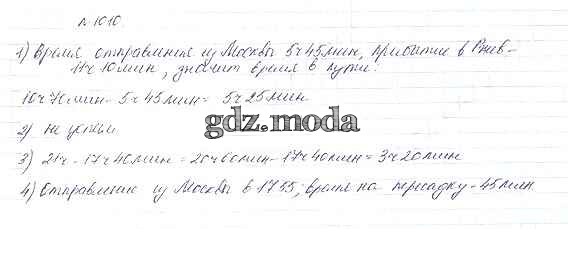 №1010.
1) Время отправления из Москвы 5ч45мин, прибытие в Ржев-
11ч10мин, значит время в пути:
10ч70мин-5ч45мин=5ч25мин
gdz.moda
2) Не успел
3) 21ч-17ч40мин=20ч60мин-17ч40мин=3ч20мин
4) Отправление из Москвы в 17:55, время на пересадку-45мин